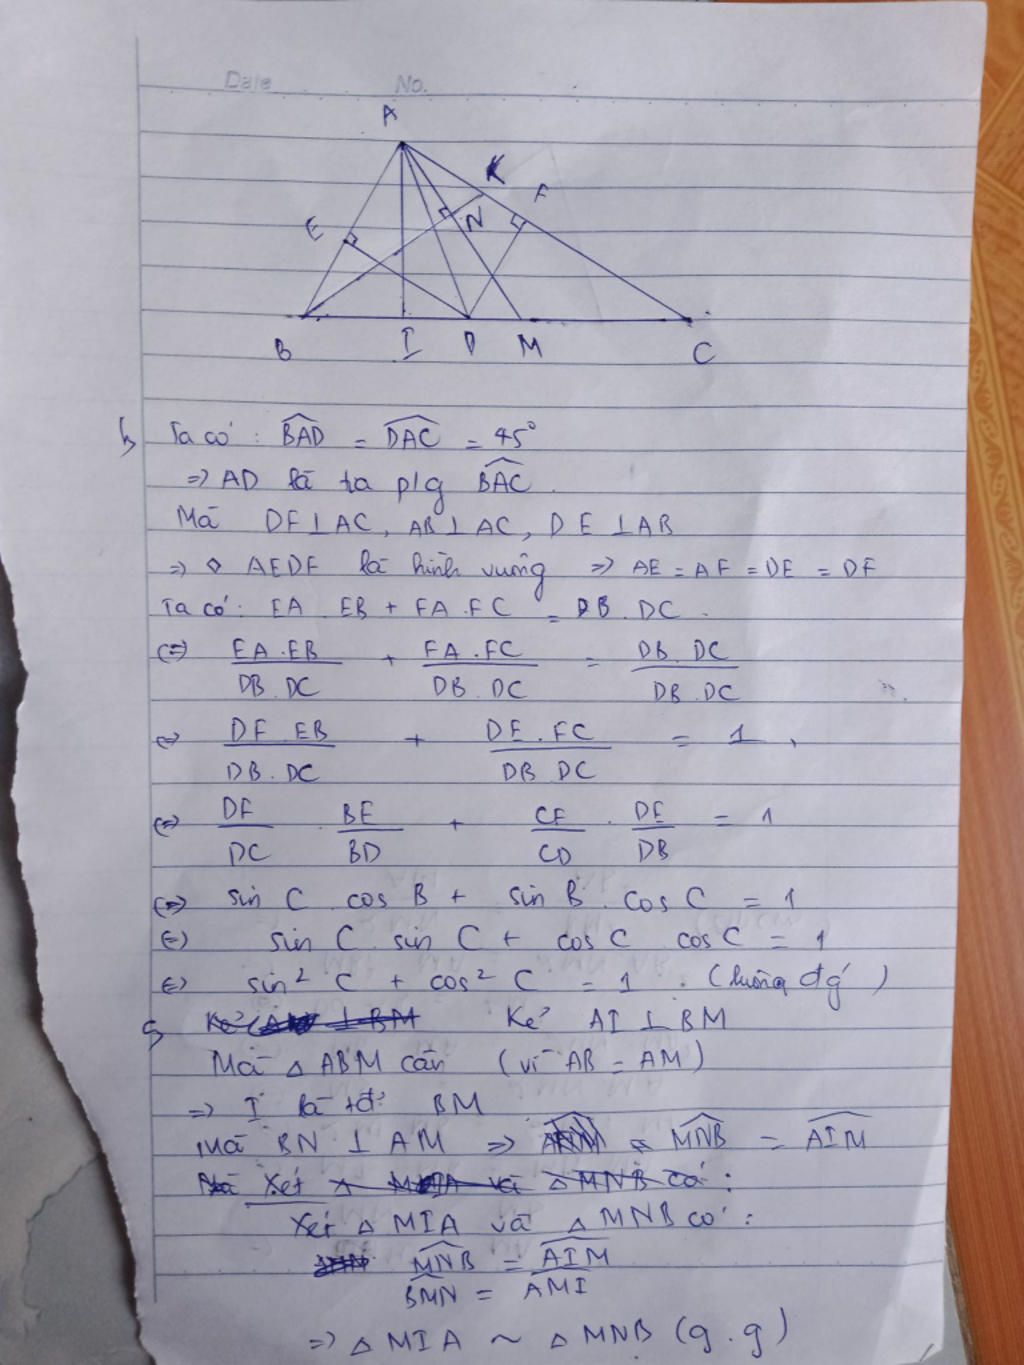 Date No.
A
K
F
E
N
B I D M C
b, Ta có: BAD = DAC = 45°
=> AD là ta p/g BAC
Mà DF ⊥ AC, AB ⊥ AC, DE ⊥ AB
=> ◊ AEDF là hình vuông => AE = AF = DE = DF
Ta có: EA . EB + FA . FC = DB . DC.
(=) EA . EB / DB . DC + FA . FC / DB . DC = DB . DC / DB . DC
(=) DF . EB / DB . DC + DE . FC / DB . DC = 1
(=) DF / DC . BE / BD + CF / CD . DE / DB = 1
(=) sin C . cos B + sin B . cos C = 1
(=) sin C . sin C + cos C . cos C = 1
(=) sin² C + cos² C = 1 . (luông đg')
c, Kẻ AI ⊥ BM
Mà △ ABM cân (vì AB = AM)
=> I là tđ: BM
Mà BN ⊥ AM => MNB = AIM
Xét △ MIA và △ MNB có:
MNB = AIM
BMN = AMI
=> △ MIA ~ △ MNB (g.g)